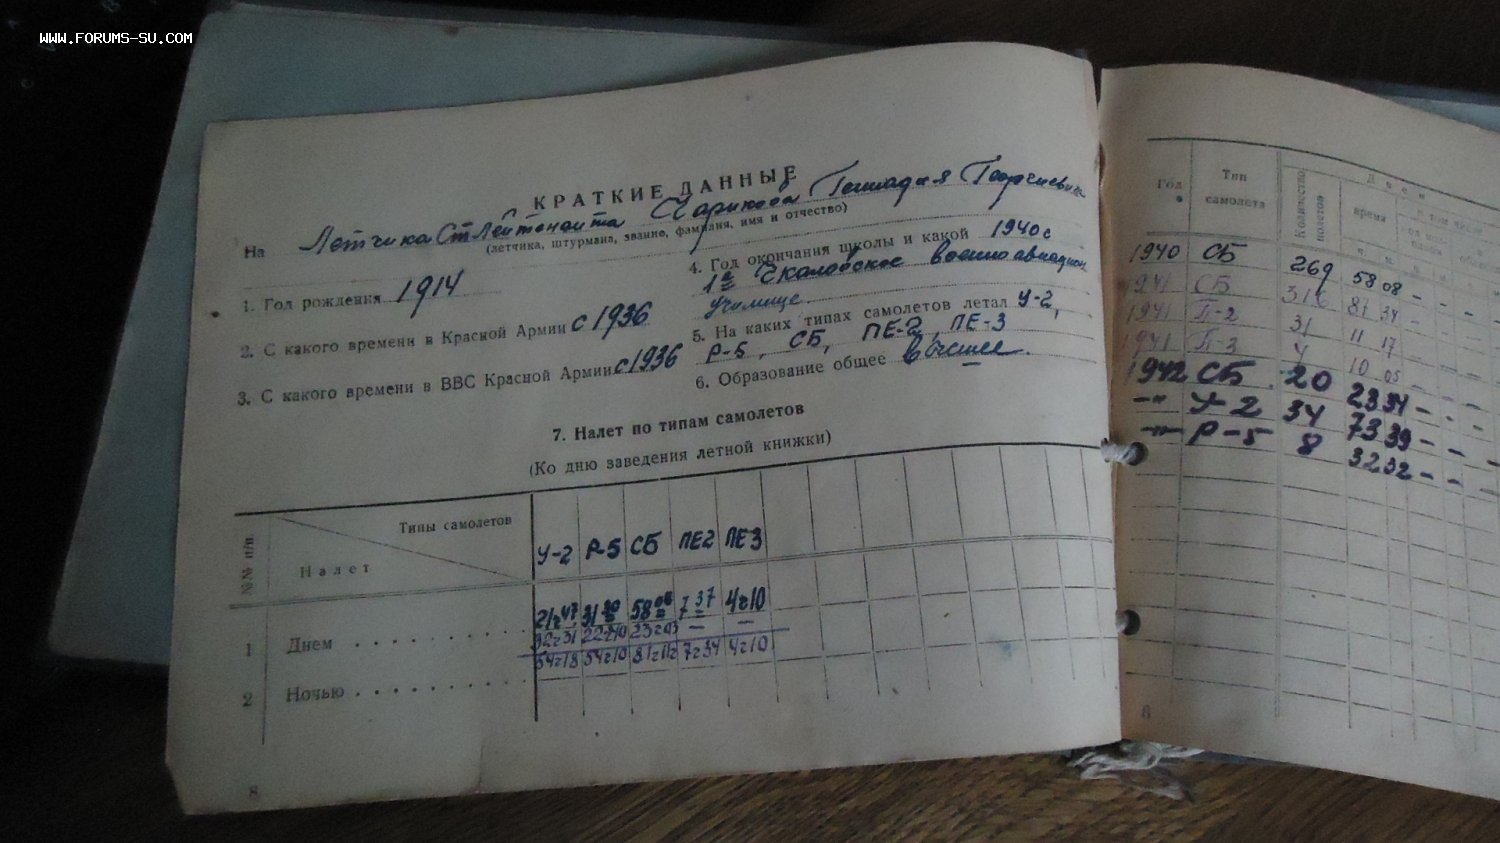 WWW.FORUMS-SU.COM
КРАТКИЕ ДАННЫЕ
На Летчика Ст. Лейтенанта Чарикова Геннадия Георгиевича
(летчика, штурмана, звание, фамилия, имя и отчество)
1. Год рождения 1914
2. С какого времени в Красной Армии с 1936
3. С какого времени в ВВС Красной Армии с 1936
4. Год окончания школы и какой 1940 г
1ое Чкаловское военно авиацион
училище
5. На каких типах самолетов летал У-2,
Р-5, СБ, ПЕ-2, ПЕ-3
6. Образование общее
7. Налет по типам самолетов
(Ко дню заведения летной книжки)
№№ п/п. Типы самолетов
Налет
У-2 Р-5 СБ ПЕ2 ПЕ3
1 Днем 58 08 7 37 4г10
22г10 23г03 — —
54г18 54г10 7г34 4г10
2 Ночью
8
Год Тип самолета Количество полетов Днем
время
1940 СБ 269 58 08 — —
1941 СБ 87 34 —
1941 П-2 31 11 17 —
1941 П-3 4 10 05 —
1942 СБ 20 23 34 — —
—"— У-2 34 73 39 — —
—"— Р-5 8 32 32 — —
6